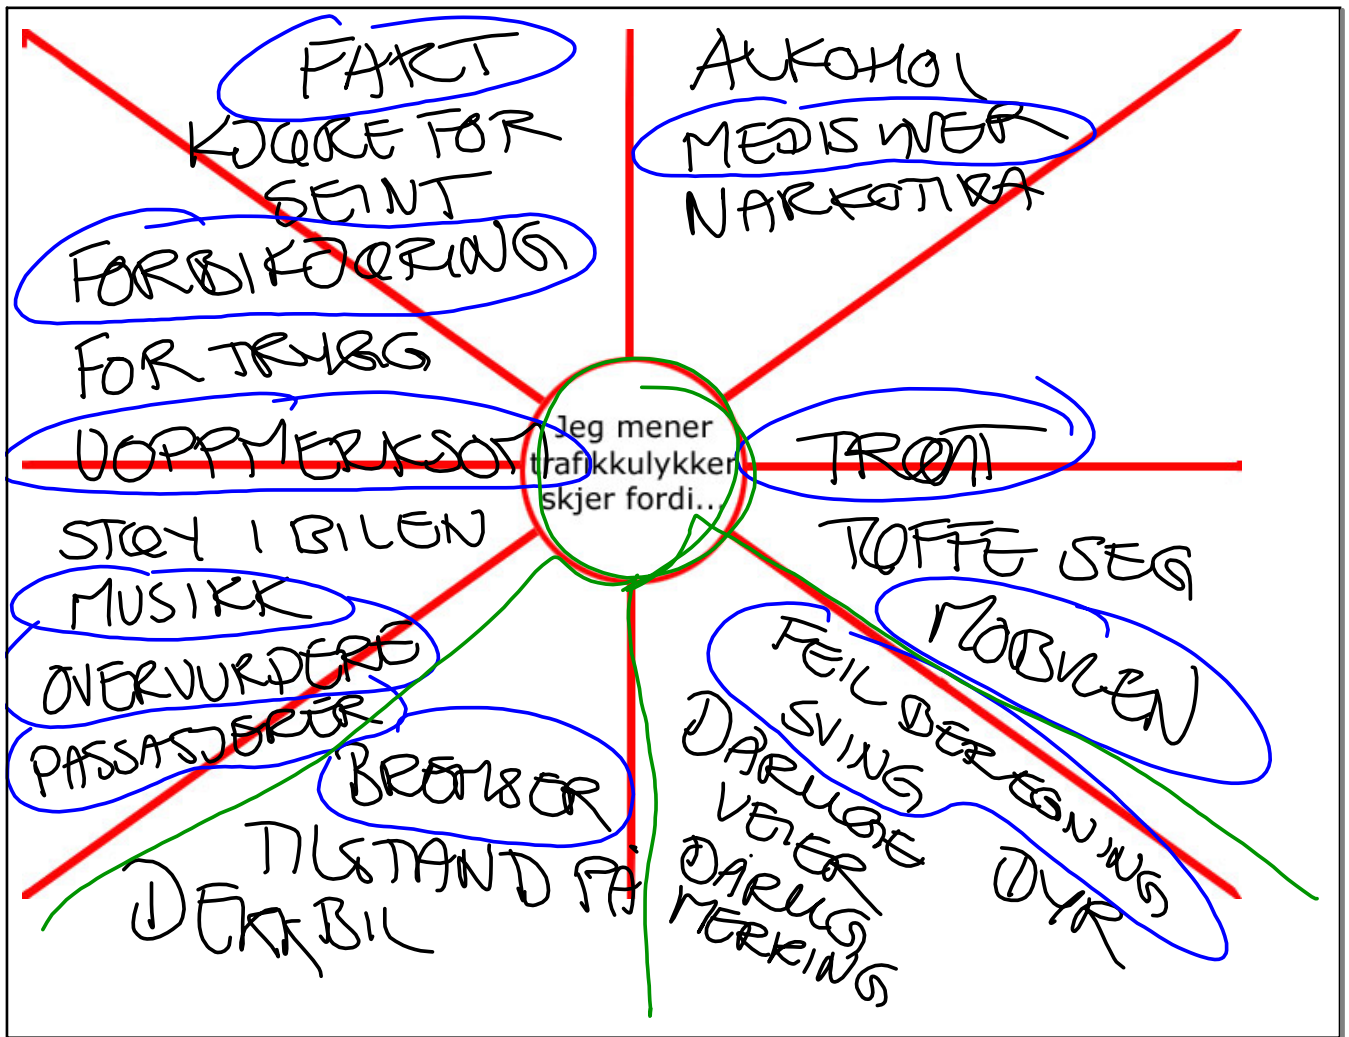 FART
KJØRE FOR
SEINT
FORBIKJØRING
FOR TRYGG
UOPPMERKSOM
STØY I BILEN
MUSIKK
OVERVURDERE
PASSASJERER
BREMSER
TILSTAND PÅ
DEKK BIL
ALKOHOL
MEDISINER
NARKOTIKA
Jeg mener
trafikkulykker
skjer fordi...
TRØTT
TØFFE SEG
MOBILEN
FEIL BEREGNING
SVING
DÅRLIGE
VEIER
DÅRLIG
MERKING
DYR